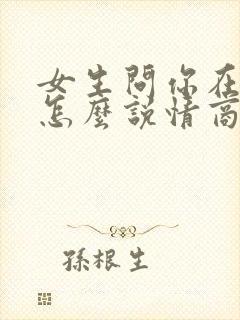 女生問你在
怎麼說情商
孫根生